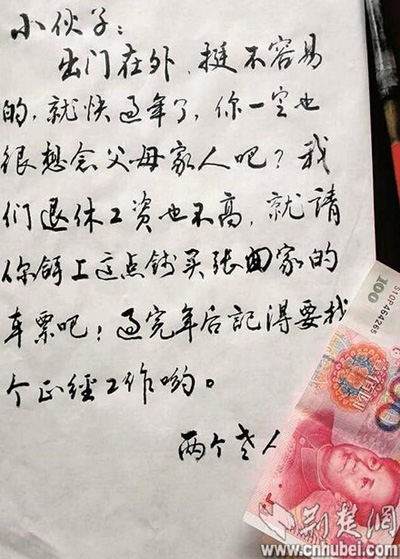 小伙子：
出门在外，挺不容易
的，就快过年了，你一定也
很想念父母家人吧？我
们退休工资也不高，就請
你餙上这点钱买张回家的
车票吧！过完年后記得要找
个正經工作哟。
两个老人
100
S10P464265
荆楚網
www.cnhubei.com